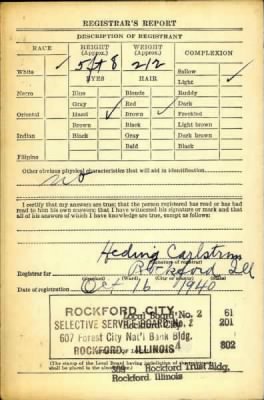 REGISTRAR'S REPORT
DESCRIPTION OF REGISTRANT
RACE HEIGHT (Approx.) WEIGHT (Approx.) COMPLEXION
White ✓ 5 ft 8 212 Sallow
EYES HAIR Light ✓
Negro Blue Blonde Ruddy
Gray Red Dark
Oriental Hazel ✓ Brown ✓ Freckled
Brown Black Light brown
Indian Black Gray Dark brown
Bald Black
Filipino
Other obvious physical characteristics that will aid in identification
no
I certify that my answers are true; that the person registered has read or has had read to him his own answers; that I have witnessed his signature or mark and that all of his answers of which I have knowledge are true, except as follows:
Carlstrom
(Signature of registrar)
Registrar for Rockford Ill
(Precinct) (Ward) (City or county) (State)
Date of registration Oct 16 1940
ROCKFORD CITY
Local Board No. 2 61
SELECTIVE SERVICE BOARD No. 2 201
607 Forest City Nat'l Bank Bldg.
4 802
ROCKFORD, ILLINOIS
(The stamp of the Local Board having jurisdiction of the registrant shall be placed in the above space.)
Rockford Trust Bldg.
Rockford, Illinois